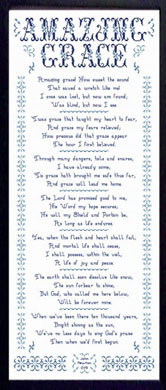 AMAZING
GRACE
Amazing grace! How sweet the sound
That saved a wretch like me!
I once was lost, but now am found,
Was blind, but now I see.
'Twas grace that taught my heart to fear,
And grace my fears relieved;
How precious did that grace appear
The hour I first believed.
Through many dangers, toils and snares,
I have already come;
'Tis grace hath brought me safe thus far,
And grace will lead me home.
The Lord has promised good to me,
His Word my hope secures;
He will my Shield and Portion be,
As long as life endures.
Yea, when this flesh and heart shall fail,
And mortal life shall cease,
I shall possess, within the veil,
A life of joy and peace.
The earth shall soon dissolve like snow,
The sun forbear to shine;
But God, who called me here below,
Will be forever mine.
When we've been there ten thousand years,
Bright shining as the sun,
We've no less days to sing God's praise
Than when we'd first begun.